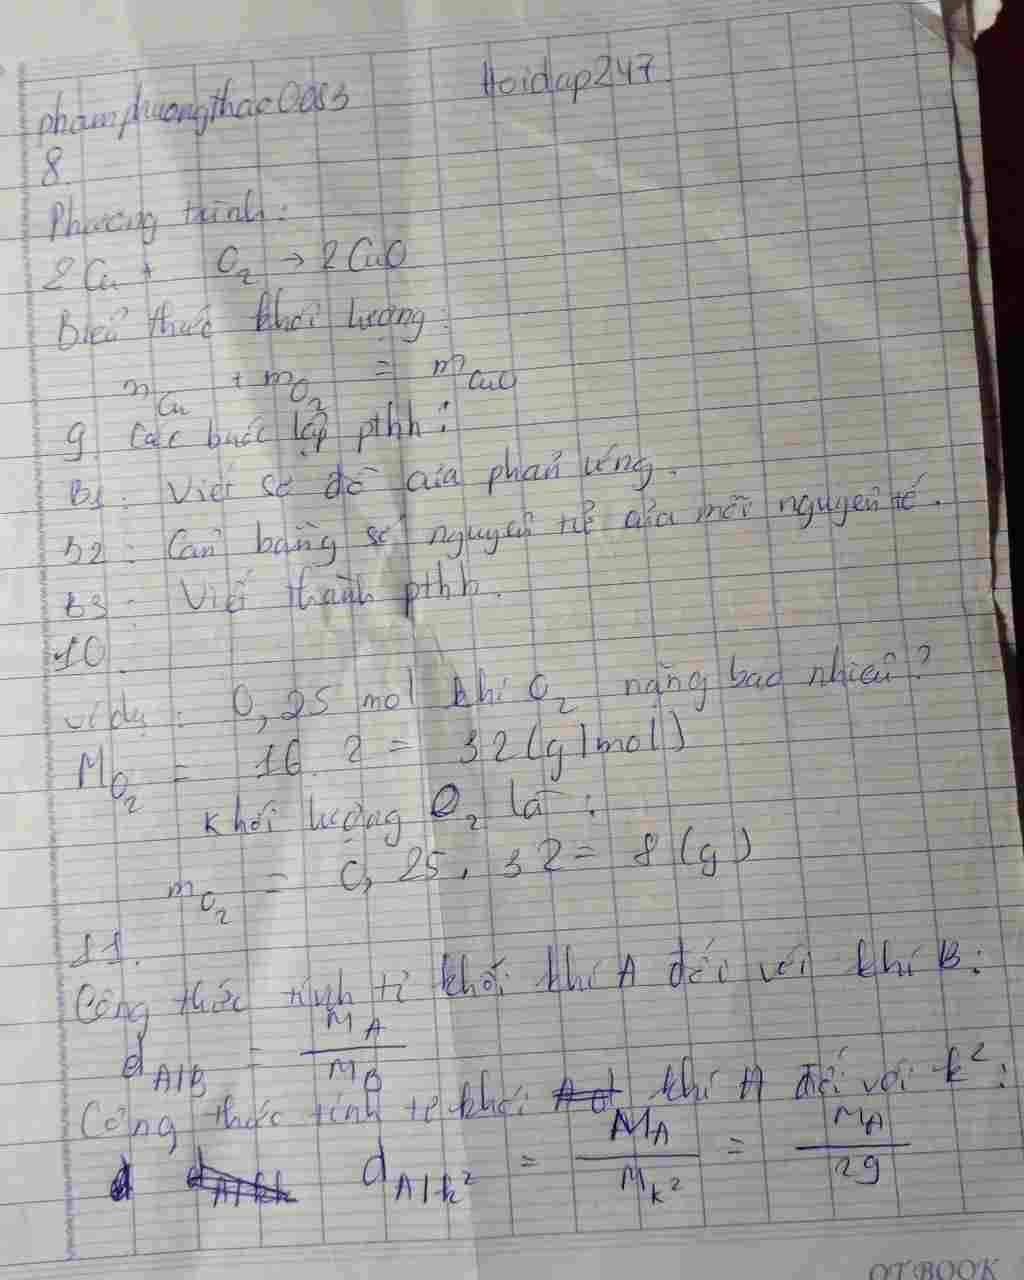 phamphuongthao0083
Hoidap247
8.
Phương trình:
2Cu + O2 → 2CuO
Biểu thức khối lượng:
mCu + mO2 = mCuO
9. Các bước lập pthh:
B1: Viết sơ đồ của phản ứng.
B2: Cân bằng số nguyên tử của mỗi nguyên tố.
B3: Viết thành pthh.
10.
Ví dụ: 0,25 mol khí O2 nặng bao nhiêu?
MO2 = 16.2 = 32(g/mol)
Khối lượng O2 là:
mO2 = 0,25.32 = 8 (g)
11.
Công thức tính tỉ khối khí A đối với khí B:
dA/B = MA/MB
Công thức tính tỉ khối khí A đối với k²:
dA/k² = MA/Mk² = MA/29
OTBOOK